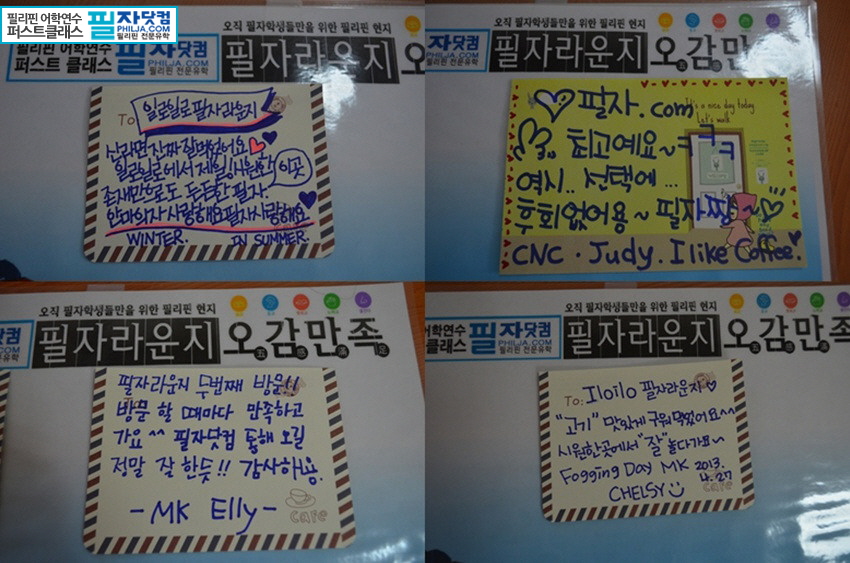 필리핀 어학연수
퍼스트클래스
필자닷컴
PHILJA.COM
필리핀 전문유학
오직 필자학생들만을 위한 필리핀 현지
필리핀 어학연수
퍼스트 클래스
필자닷컴
PHILJA.COM
필리핀 전문유학
필자라운지 오
To 일로일로 필자라운지
신라면 진짜 잘먹었어요
일로일로에서 제일 시원한 이곳
존재만으로도 든든한 필자
안마의자 사랑해요 필자 사랑해요
WINTER. IN SUMMER.
오직 필자학생들만을 위한 필리핀 현지
자닷컴
PHILJA.COM
필리핀 전문유학
필자라운지 오감만
It's a nice day today
Let's walk
필자.com
최고예요~ㅋㅋㅋ
역시.. 선택에...
후회없어용~ 필자짱~
CNC · Judy. I like Coffee.
오직 필자학생들만을 위한 필리핀 현지
닷컴
JA.COM
전문유학
필자라운지 오감만족
필자라운지 두번째 방문!!
방문 할 때마다 만족하고
가요^^ 필자닷컴 통해 오길
정말 잘 한듯!! 감사해용.
- MK Elly -
cafe
오직 필자학생들만을 위한 필리핀 현지
어학연수
클래스
필자닷컴
PHILJA.COM
필리핀 전문유학
필자라운지 오감만
To: Iloilo 필자라운지
"고기" 맛있게 구워먹었어요^^
시원한곳에서 "잘" 놀다가요~
Fogging Day MK 2013.
4.27
CHELSY
cafe